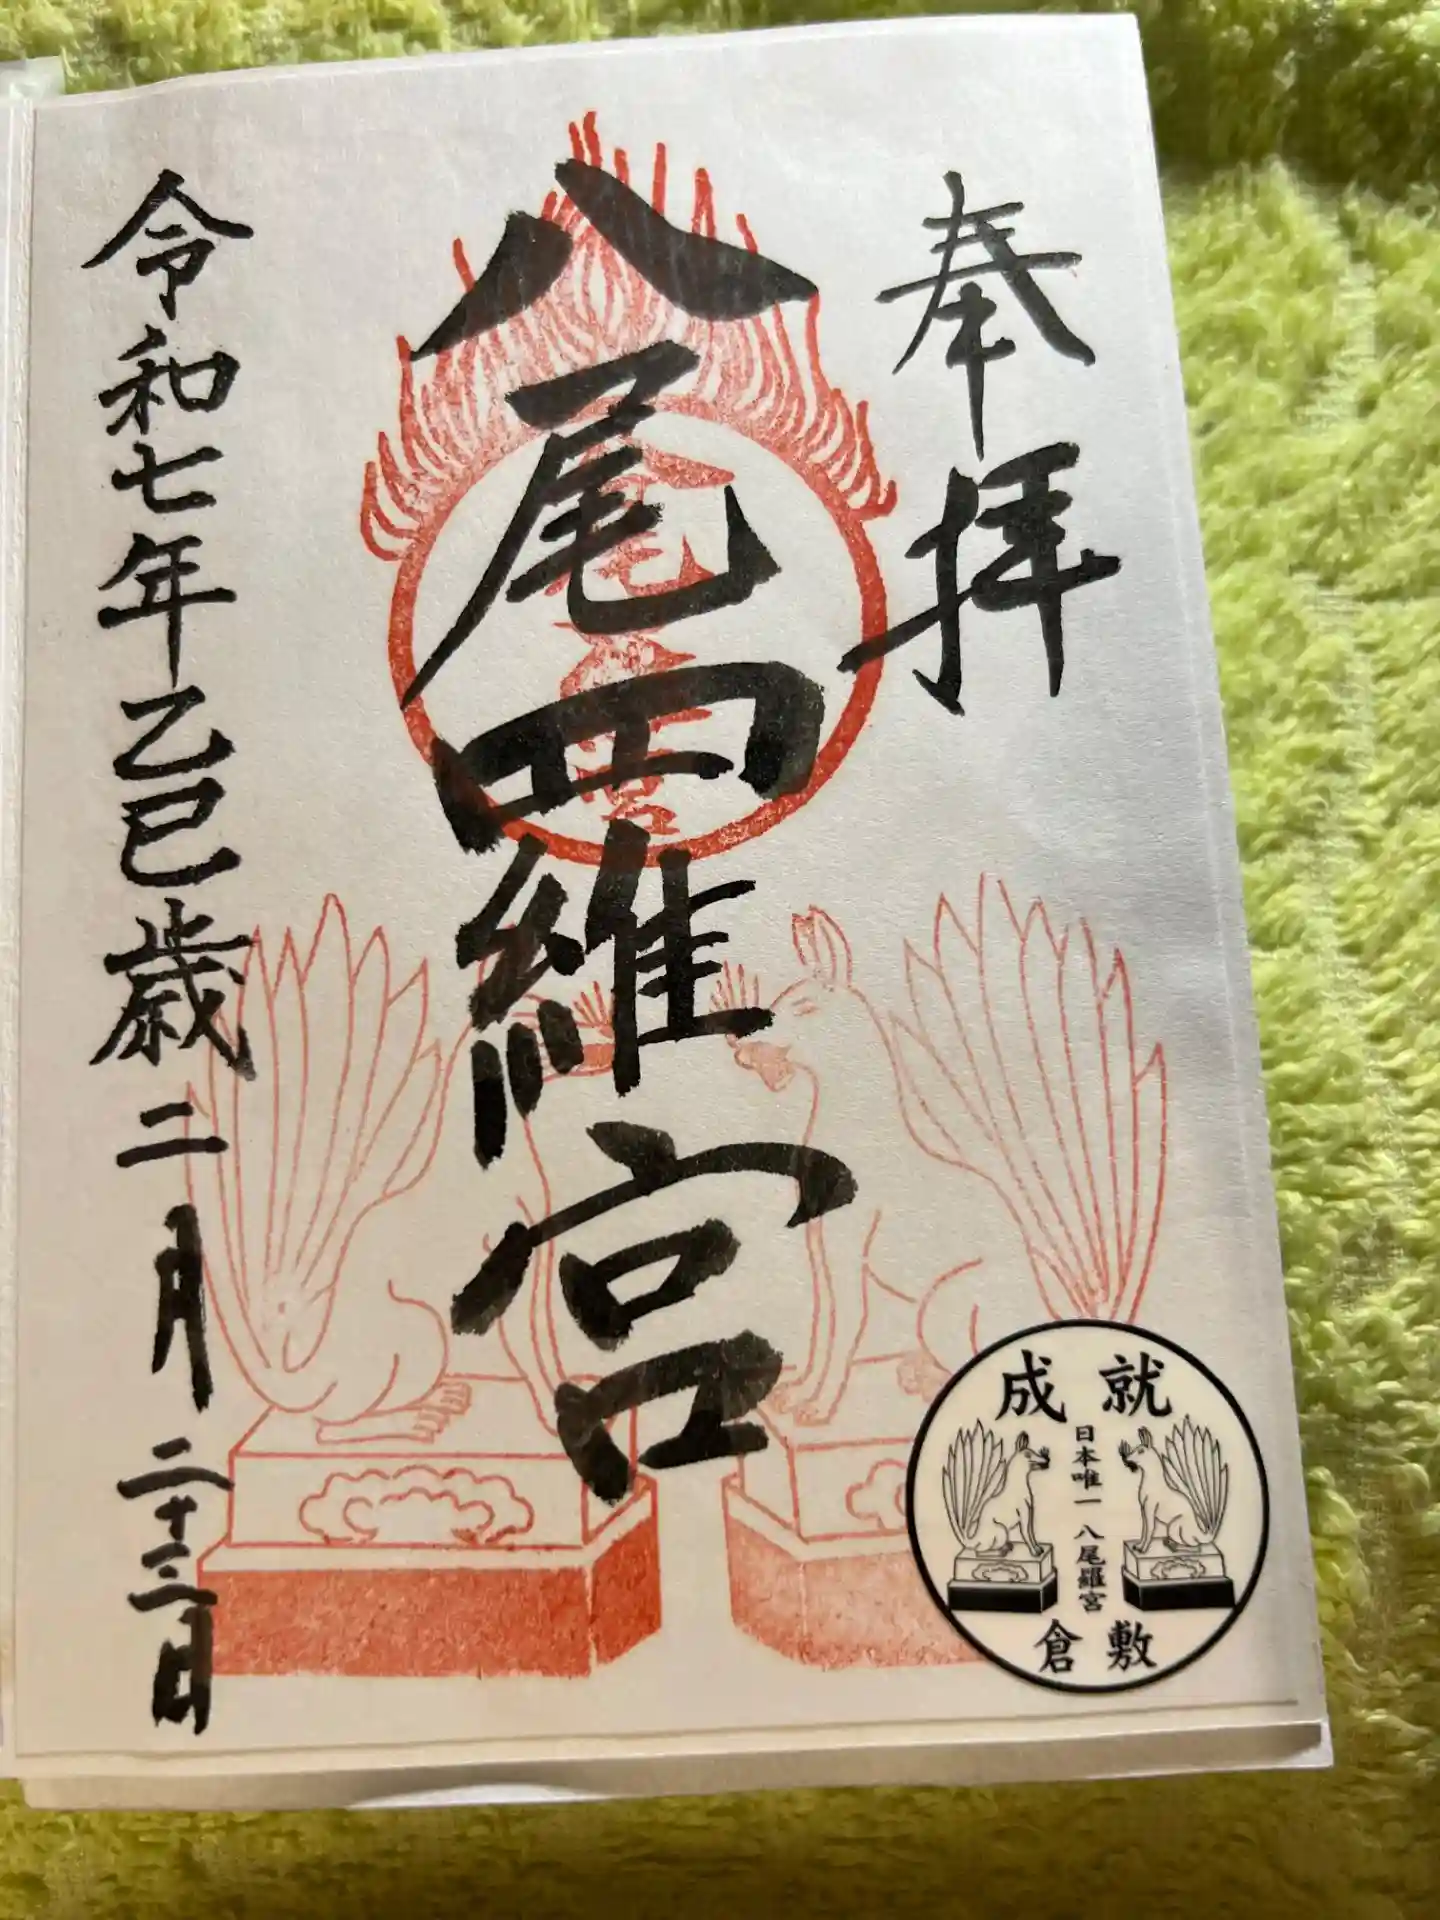 奉拝
八尾羅宮
令和七年乙巳歳二月二十三日
成就
日本唯一八尾羅宮
倉敷